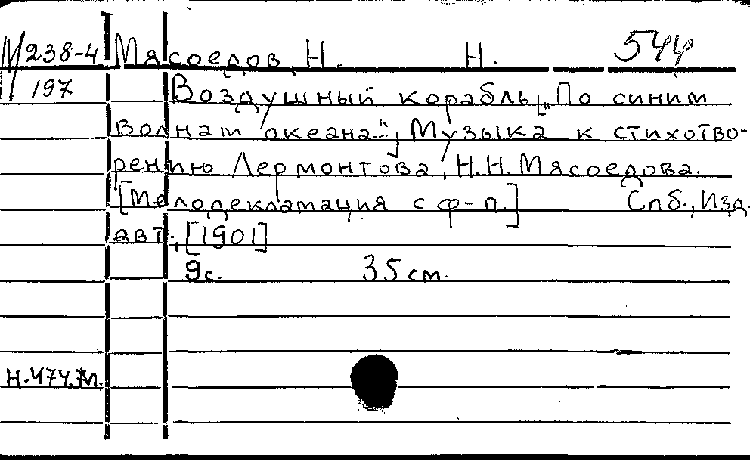 М 238-4 Мясоедов, Н. Н. 544
197 Воздушный корабль [„По синим
волнам океана“]. Музыка к стихотво-
рению Лермонтова, Н.Н. Мясоедова.
[Мелодекламация с ф-п.] Спб., Изд.
авт., [1901]
9с. 35 см.
Н.474.М.